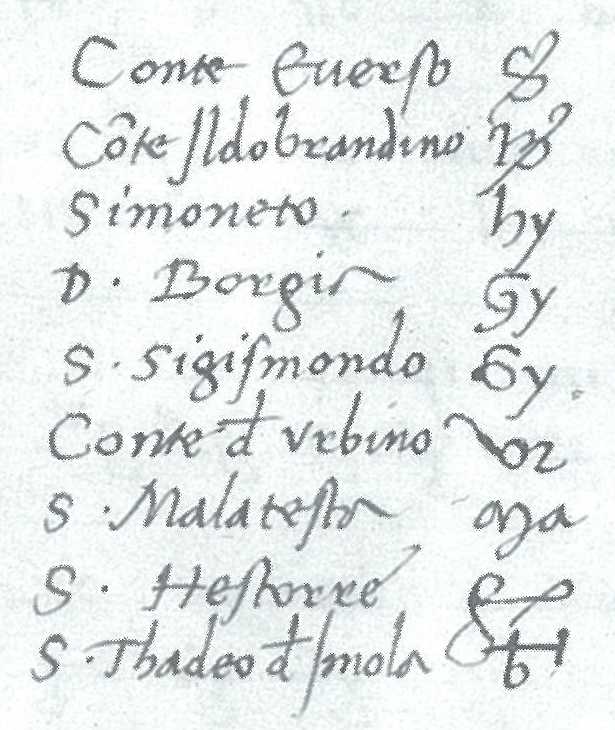 Conte Euerso
Cōte Ildobrandino
Simoneto .
D . Borgia hy
S . Sigismondo
Conte d Vrbino
S . Malatesta
S . Hestorre
S . Thadeo d Imola